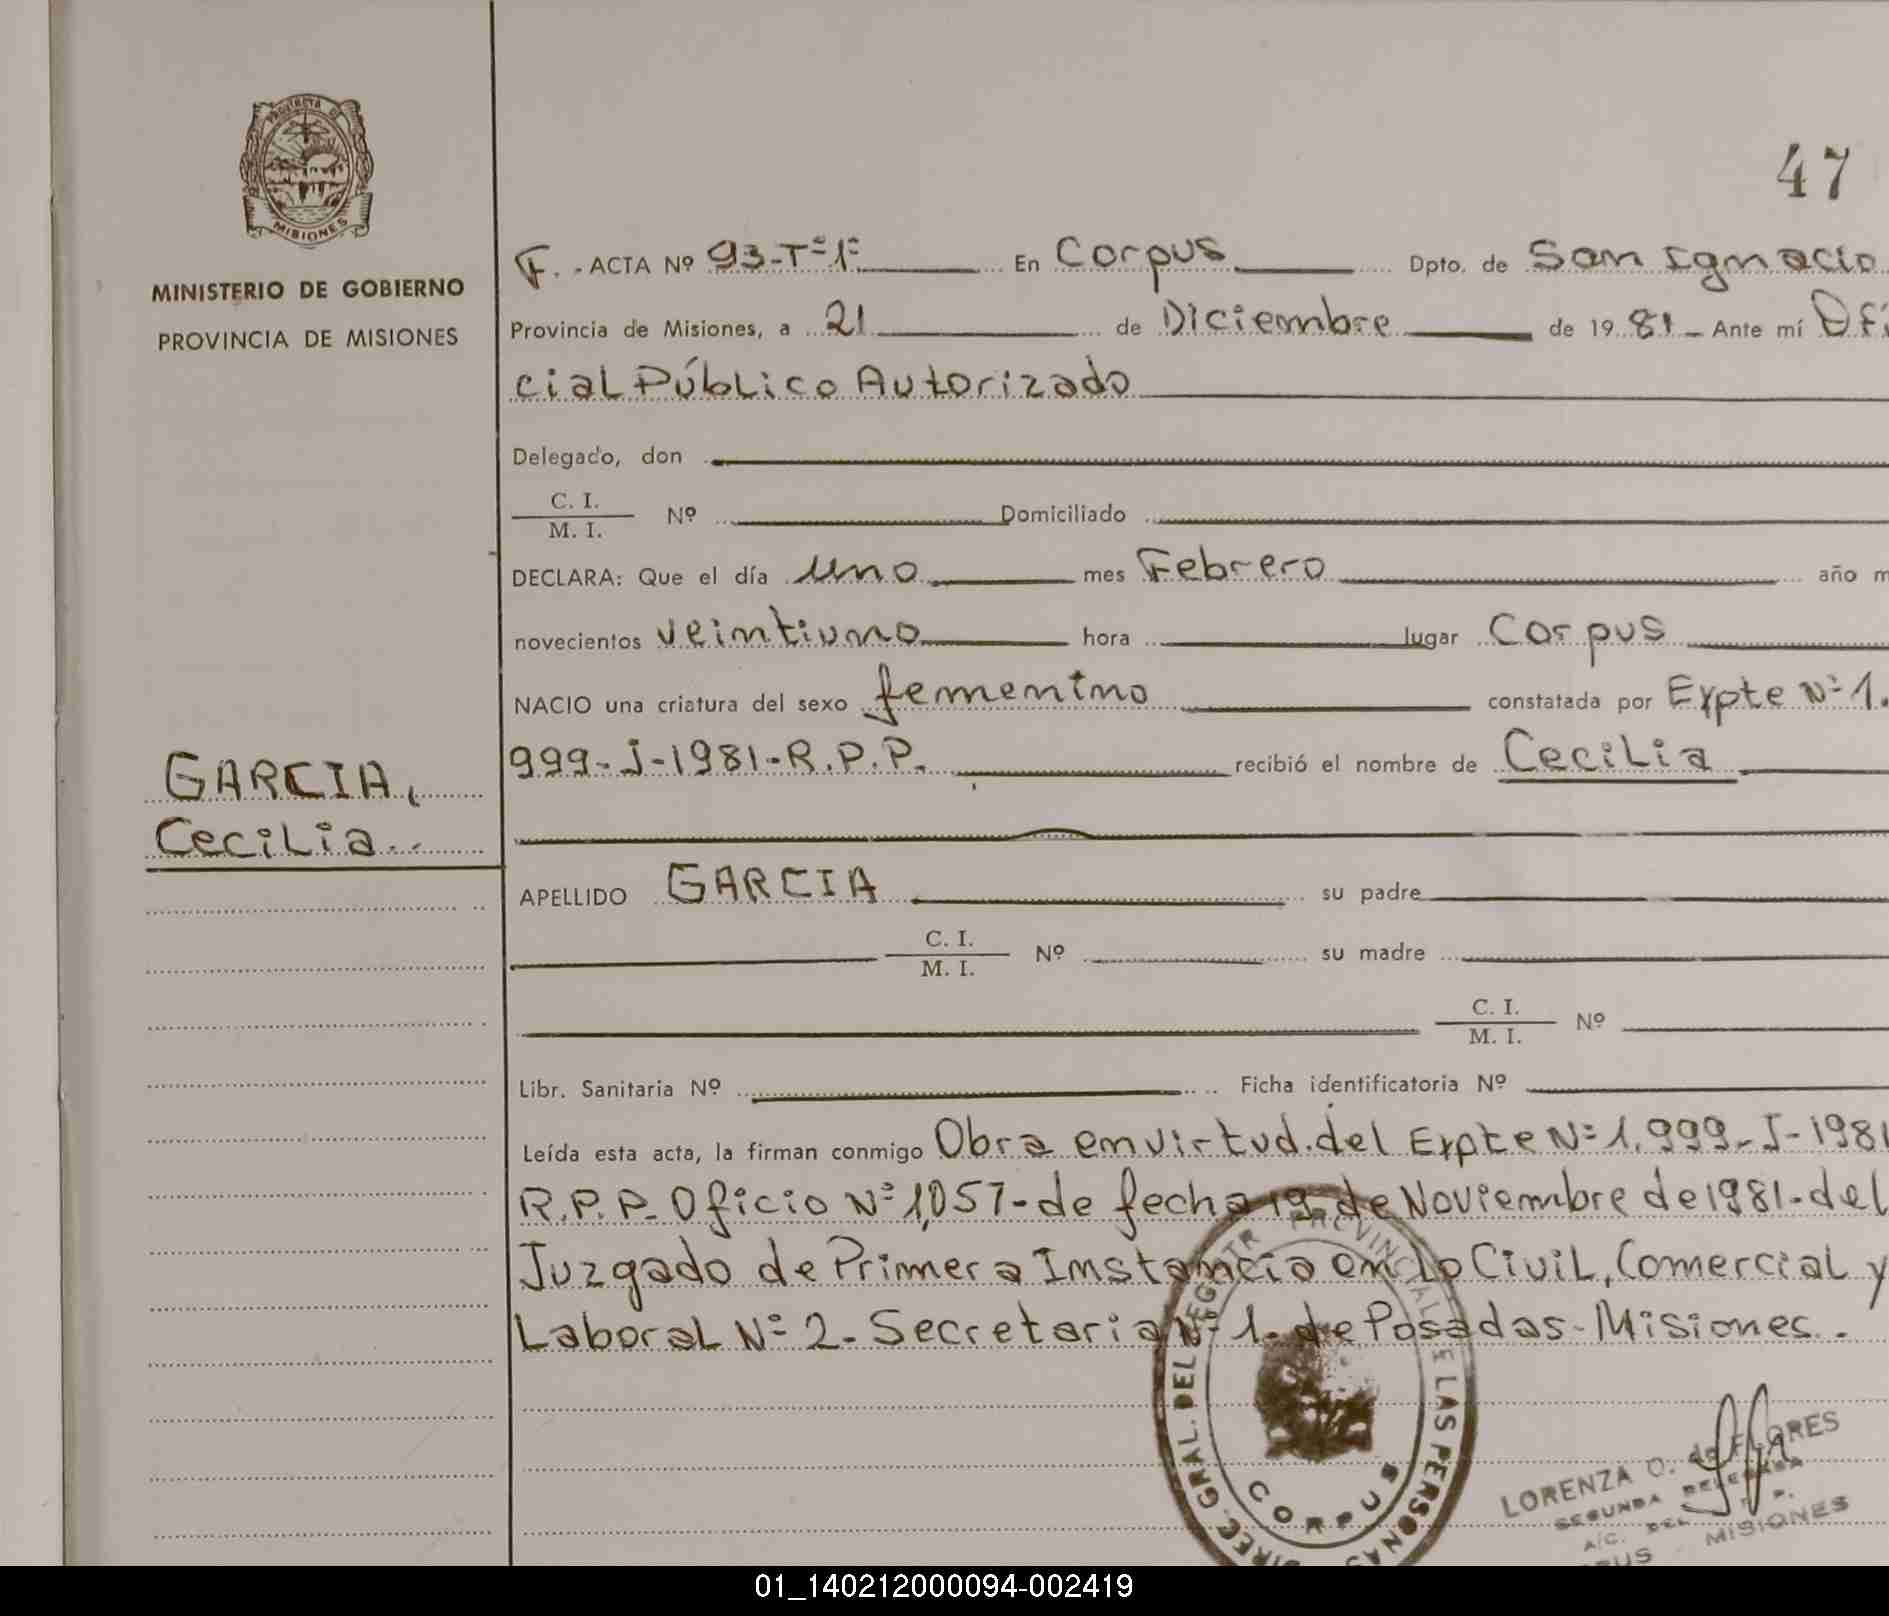 PROVINCIA DE
MISIONES
MINISTERIO DE GOBIERNO
PROVINCIA DE MISIONES
47
F. - ACTA Nº 93-Tº 1º En Corpus Dpto. de San Ignacio
Provincia de Misiones, a 21 de Diciembre de 19 81 - Ante mí Ofi
cial Público Autorizado
Delegado, don
C. I.
M. I. Nº Domiciliado
DECLARA: Que el día uno mes Febrero año m
novecientos veintiuno hora lugar Corpus
NACIO una criatura del sexo femenino constatada por Expte Nº 1.
999-J-1981-R.P.P. recibió el nombre de Cecilia
GARCIA,
Cecilia..
APELLIDO GARCIA su padre
C. I.
M. I. Nº su madre
C. I.
M. I. Nº
Libr. Sanitaria Nº Ficha identificatoria Nº
Leída esta acta, la firman conmigo Obra en virtud del Expte Nº 1.999-J-1981
R.P.P. Oficio Nº 1,057-de fecha 19 de Noviembre de 1981-del
Juzgado de Primera Instancia en lo Civil, Comercial y
Laboral Nº 2-Secretaria Nº 1-de Posadas-Misiones.
DIREC. GRAL. DEL REGISTR PROVINCIAL E LAS PERSONAS
CORPUS
LORENZA O. de FLORES
SEGUNDA DELEGADA
A/C. DEL R. P.
PUS - MISIONES
01_140212000094-002419